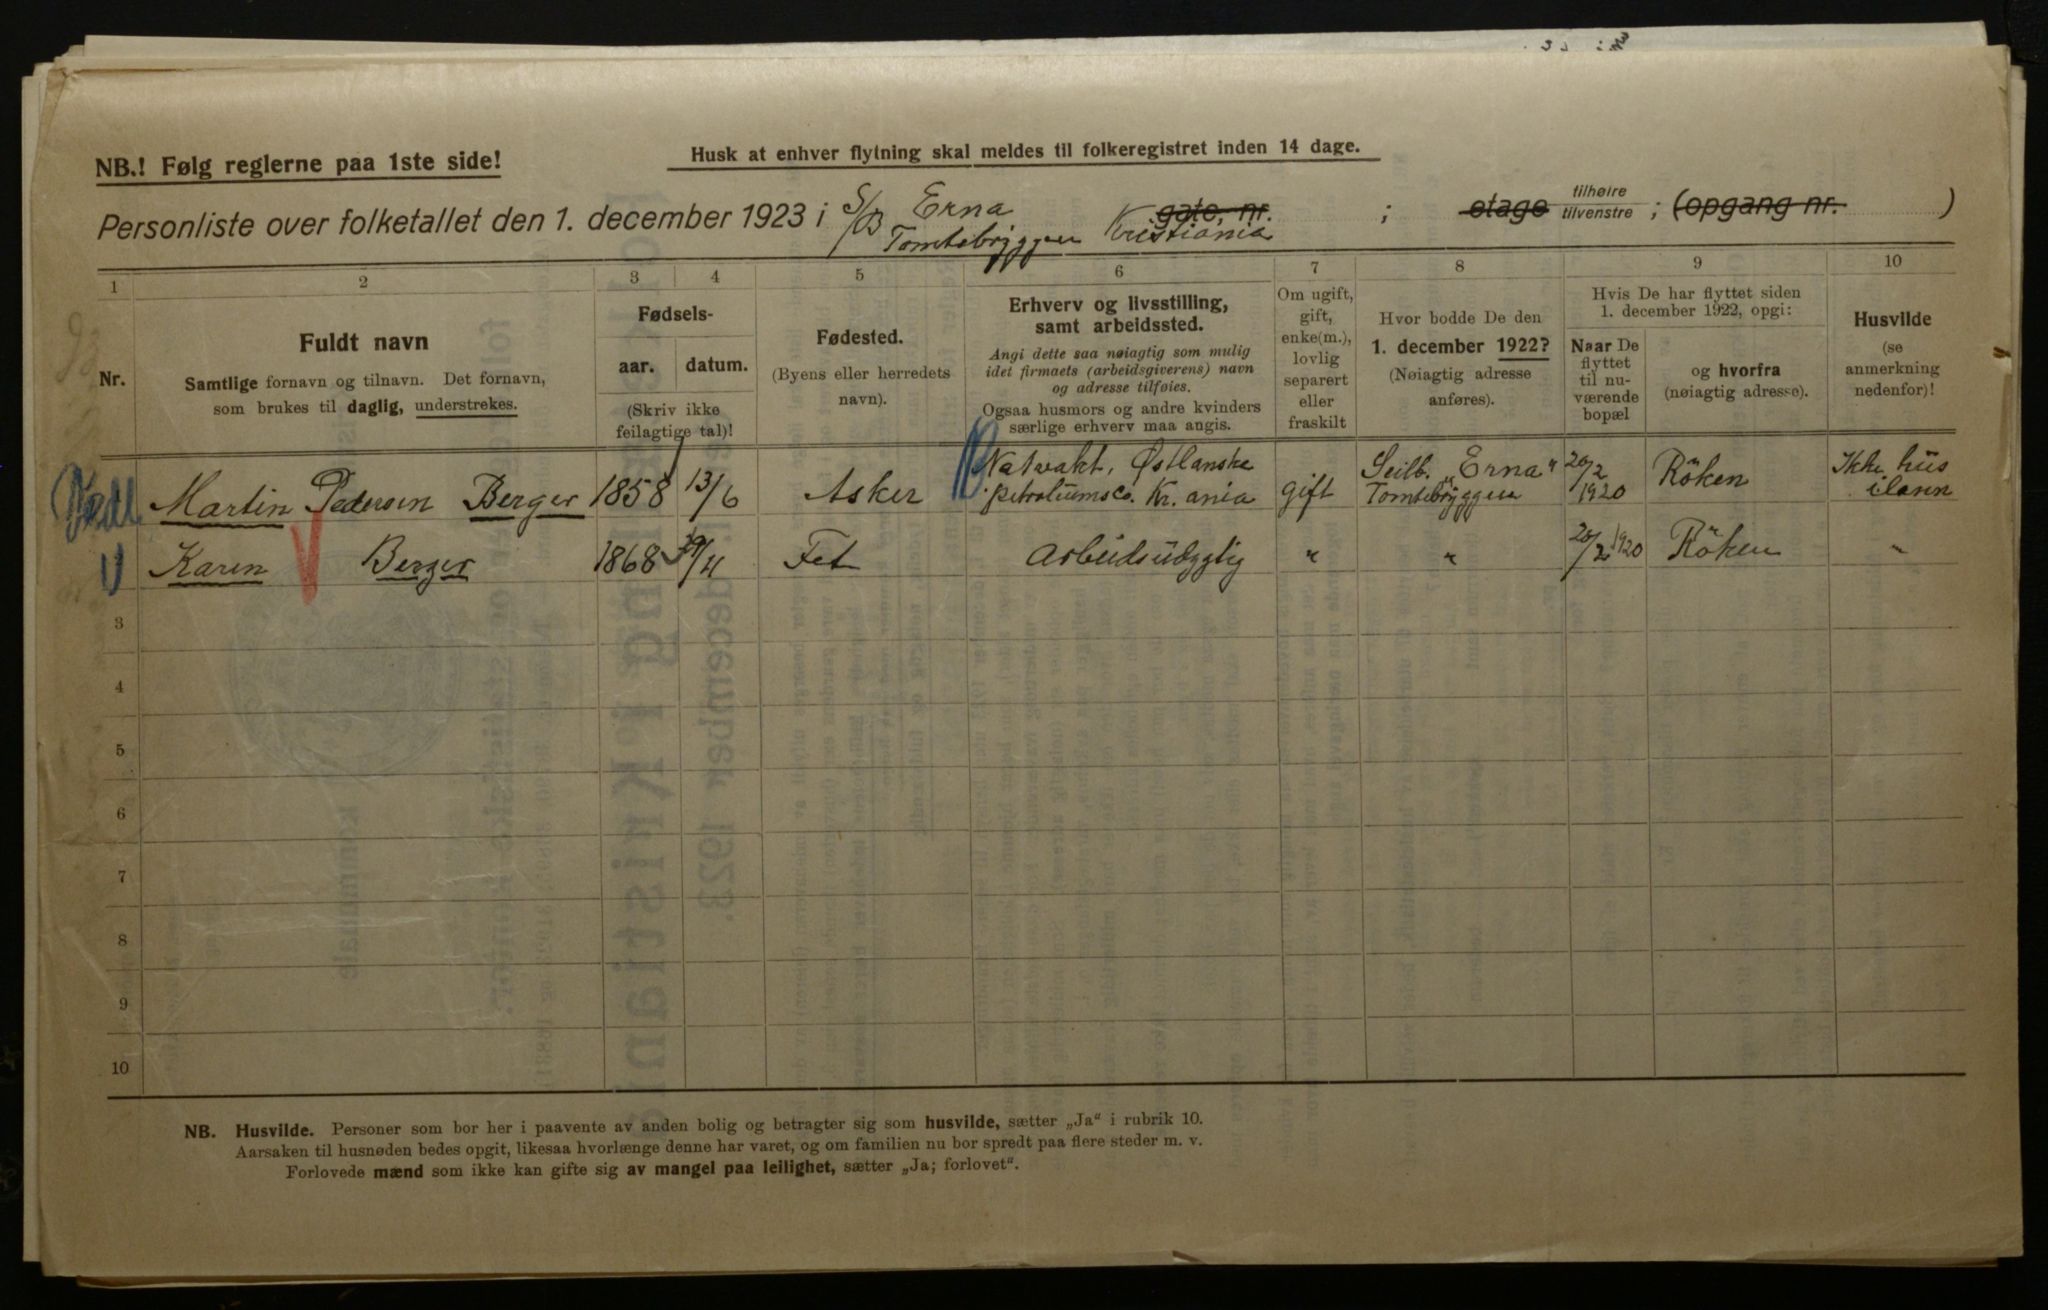 NB.! Følg reglerne paa 1ste side!
Husk at enhver flytning skal meldes til folkeregistret inden 14 dage.
Personliste over folketallet den 1. december 1923 i S/B Erna gate, nr. ; etage tilhøire tilvenstre ; (opgang nr. )
Tomtebryggen Kristiania
1 2 3 4 5 6 7 8 9 10
Nr.
Fuldt navn
Samtlige fornavn og tilnavn. Det fornavn,
som brukes til daglig, understrekes.
Fødsels-
aar. datum.
(Skriv ikke
feilagtige tal)!
Fødested.
(Byens eller herredets
navn).
Erhverv og livsstilling,
samt arbeidssted.
Angi dette saa nøiagtig som mulig
idet firmaets (arbeidsgiverens) navn
og adresse tilføies.
Ogsaa husmors og andre kvinders
særlige erhverv maa angis.
Om ugift,
gift,
enke(m.),
lovlig
separert
eller
fraskilt
Hvor bodde De den
1. december 1922?
(Nøiagtig adresse
anføres).
Hvis De har flyttet siden
1. december 1922, opgi:
Naar De
flyttet
til nu-
værende
bopæl
og hvorfra
(nøiagtig adresse).
Husvilde
(se
anmerkning
nedenfor)!
Martin Pedersen Berger 1858 13/6 Asker Natvakt, Østlanske petroliumsco. Kr. ania gift Seilb. „Erna“ Tomtebryggen 20/2 1920 Röken Ikke hus
Karen Berger 1868 /4 Fet Arbeidsudygtig " " 20/2 1920 Röken "
3
4
5
6
7
8
9
10
NB. Husvilde. Personer som bor her i paavente av anden bolig og betragter sig som husvilde, sætter „Ja“ i rubrik 10.
Aarsaken til husnøden bedes opgit, likesaa hvorlænge denne har varet, og om familien nu bor spredt paa flere steder m. v.
Forlovede mænd som ikke kan gifte sig av mangel paa leilighet, sætter „Ja; forlovet“.